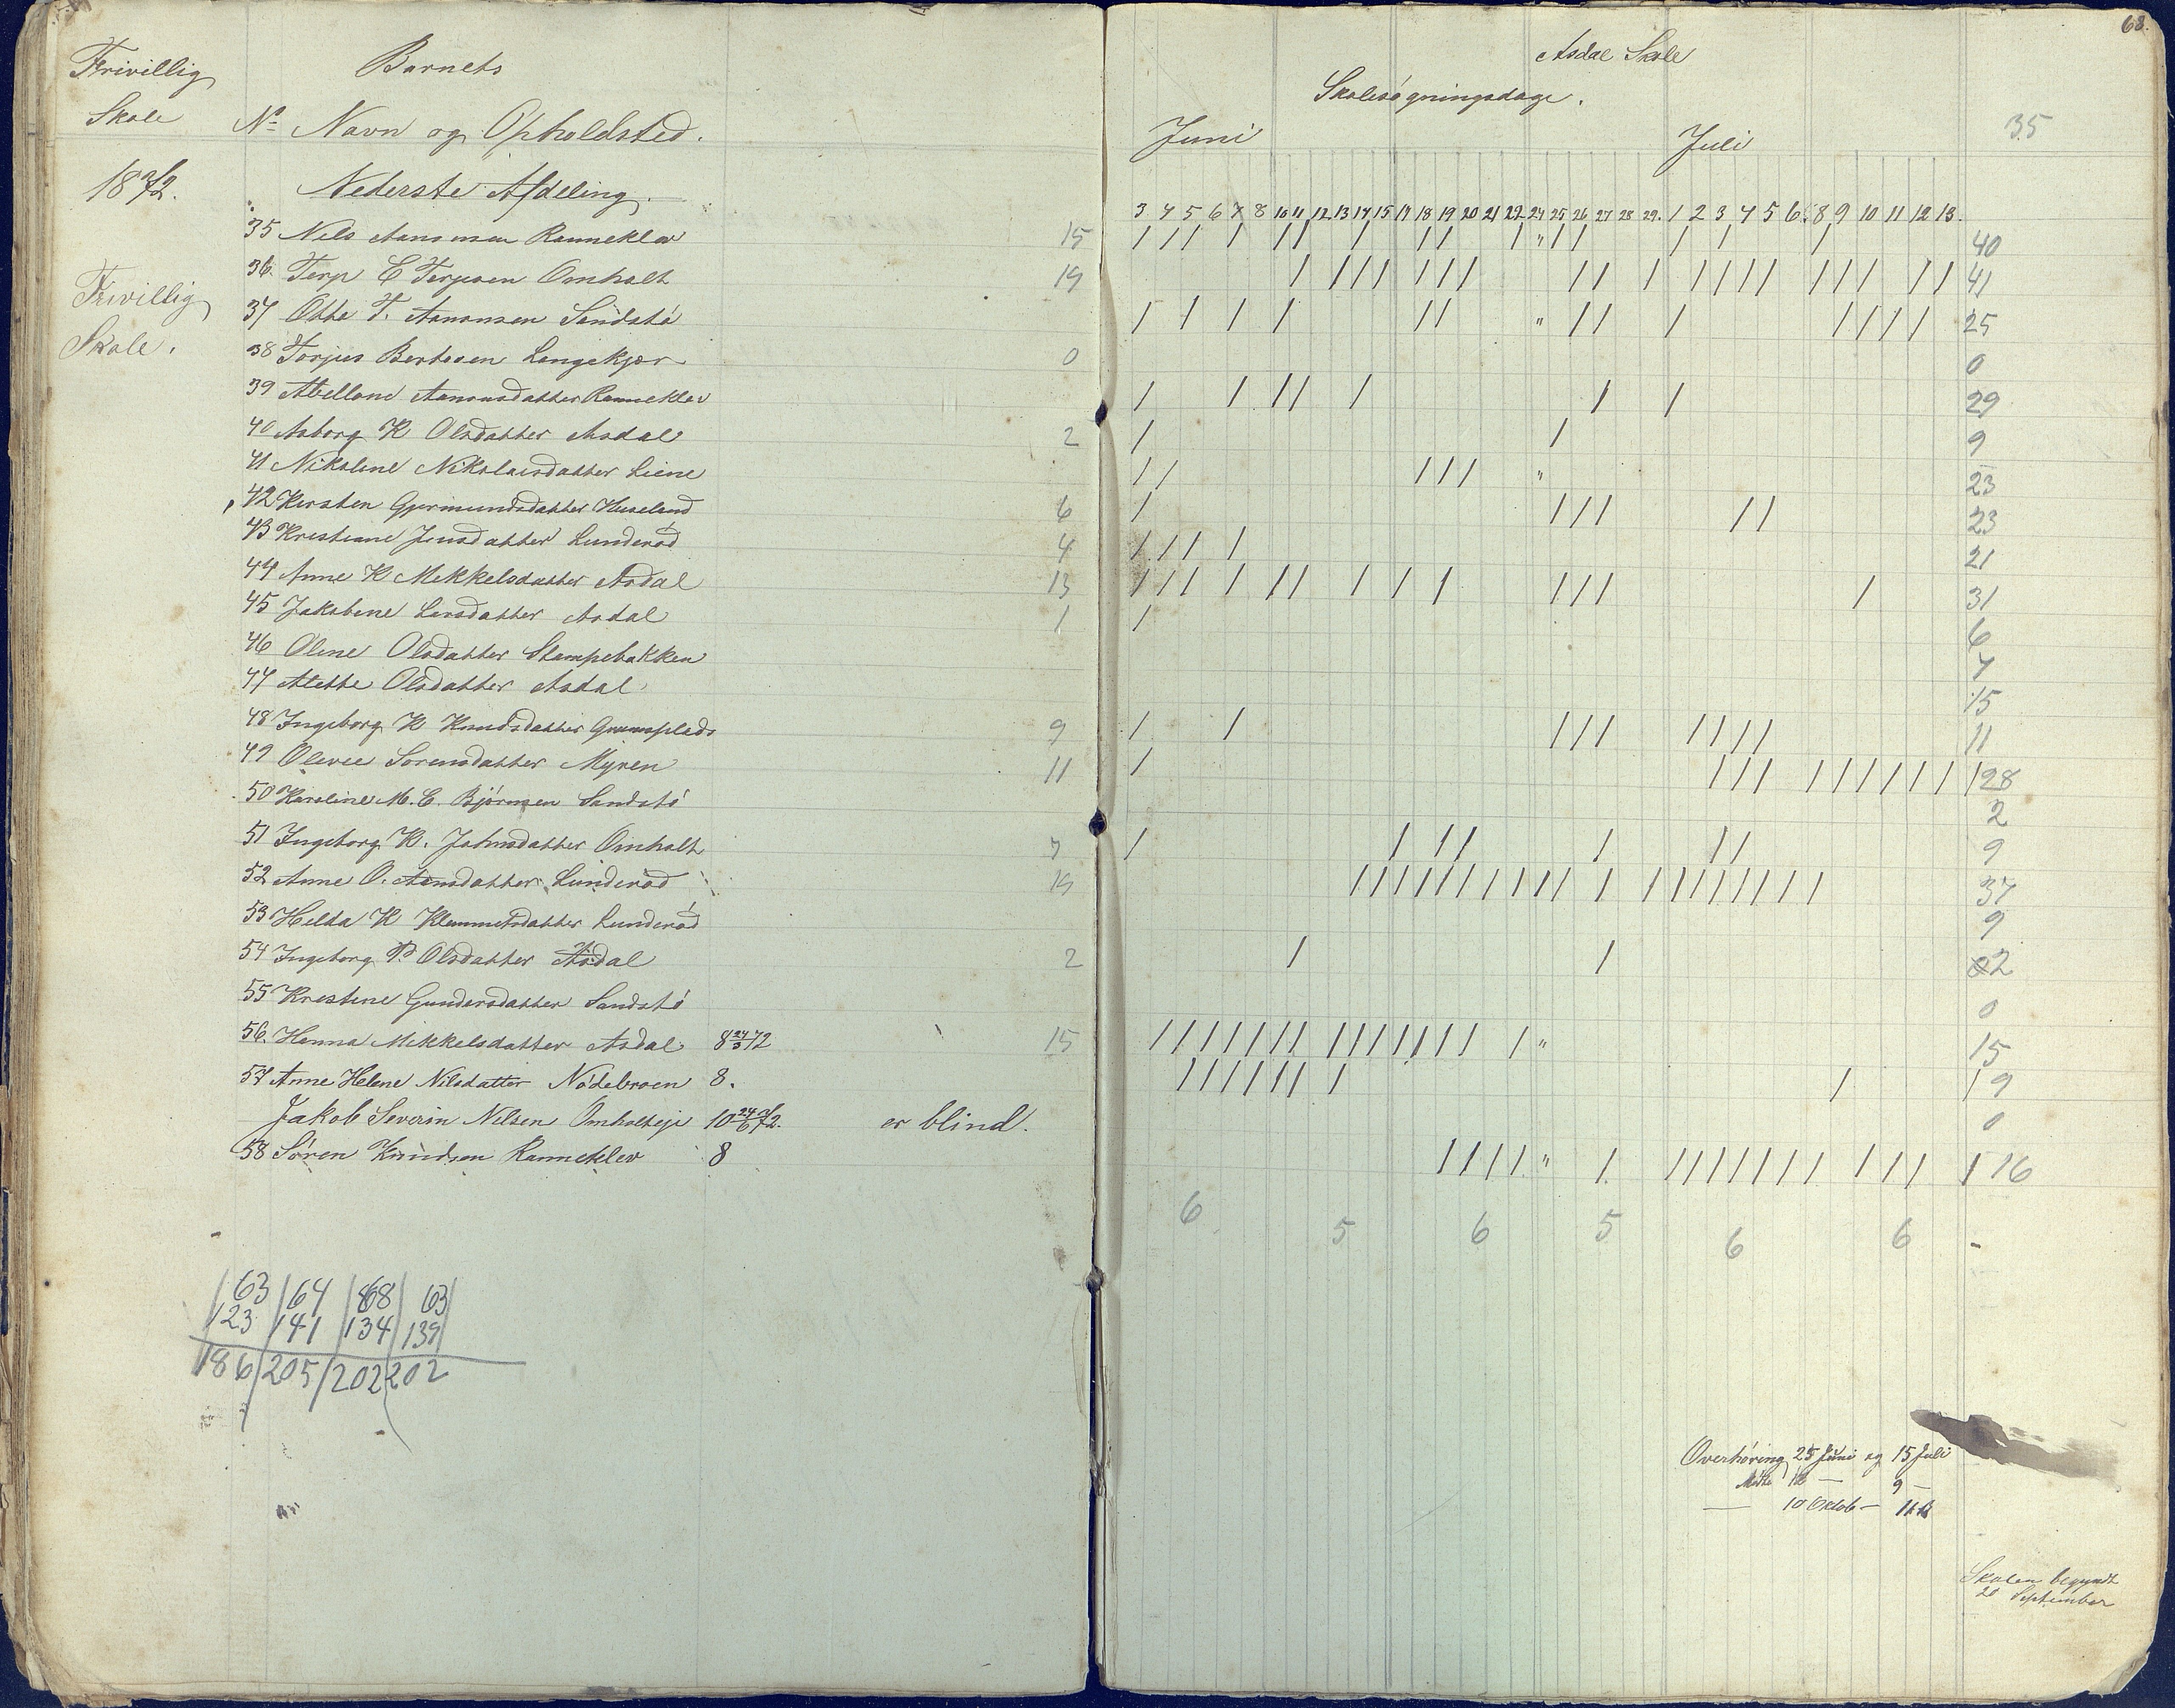 Frivillig
Skole
Barnets
No Navn og Opholdsted.
1872.
Nederste Afdeling.
35 Nils Aanonsen Ranneklev 15
36. Terje E Terjesen Omholt 19
Frivillig
Skole.
37 Otto T. Aanonsen Sandstö
38 Torjus Bertesen Langekjær 0
39 Abellone Aanonsdatter Ranneklev
40 Asborg K Olsdatter Asdal 2
41 Nikoline Nikolaisdatter Liene
42 Kirsten Gjermundsdatter Huseland 6
43 Kristiane Jensdatter Lunderöd 4
44 Anne K Mikkelsdatter Asdal 13
45 Jakobine Larsdatter Asdal 1
46 Oline Olsdatter Stampebakken
47 Alette Olsdatter Asdal
48 Ingeborg K Knudsdatter 9
49 Olevie Sorensdatter Myren 11
50 Karoline M. C. Björnsen Sandstö
51 Ingeborg K. Johnsdatter Omholt 7
52 Anne O. Lunderöd 19
53 Helta K Klemmetsdatter Lunderöd
54 Ingeborg P. Olsdatter Asdal 2
55 Kristine Gundersdatter Sandstö
56. Henna Mikkelsdatter Asdal 8 24/3 72 15
57 Anne Helene Nilsdatter Nödebroen 8.
Jakob Severin Nilsen Omholteje 10 24/6 72. er blind.
58 Sören Knudsen Ranneklev 8
63 64 68 63
123 141 134 139
186 205 202 202
63.
Asdal Skole
Skolesögningsdage.
Juni Juli 35
3 4 5 6 7 8 10 11 12 13 14 15 17 18 19 20 21 22 24 25 26 27 28 29. 1 2 3 4 5 6 8 9 10 11 12 13.
/ / / / / / / / / / " / / / / / 40
/ / / / / / / / / / / / / / / / / / / / 41
/ / / / / / " / / / / / / / 25
0
/ / / / / / / 29
/ / 9
/ / / / / " 23
/ / / / / / 23
/ / / / 21
/ / / / / / / / / / / / / 31
/ 6
7
15
/ / / / / / / / / 11
/ / / / / / / / / / / 28
2
/ / / / / / / 9
/ / / / / / / / / / / / / / / / / / / 37
9
/ / 2
0
/ / / / / / / / / / / / / / / " 15
/ / / / / / / / / 9
0
/ / / / " / / / / / / / / / / / / 16
6 5 6 5 6 6 -
Overhöring 25 Juni og 15 Juli
Mödte 12 — 9 —
— 10 Oktob — 11
Skolen begyndt
20 September